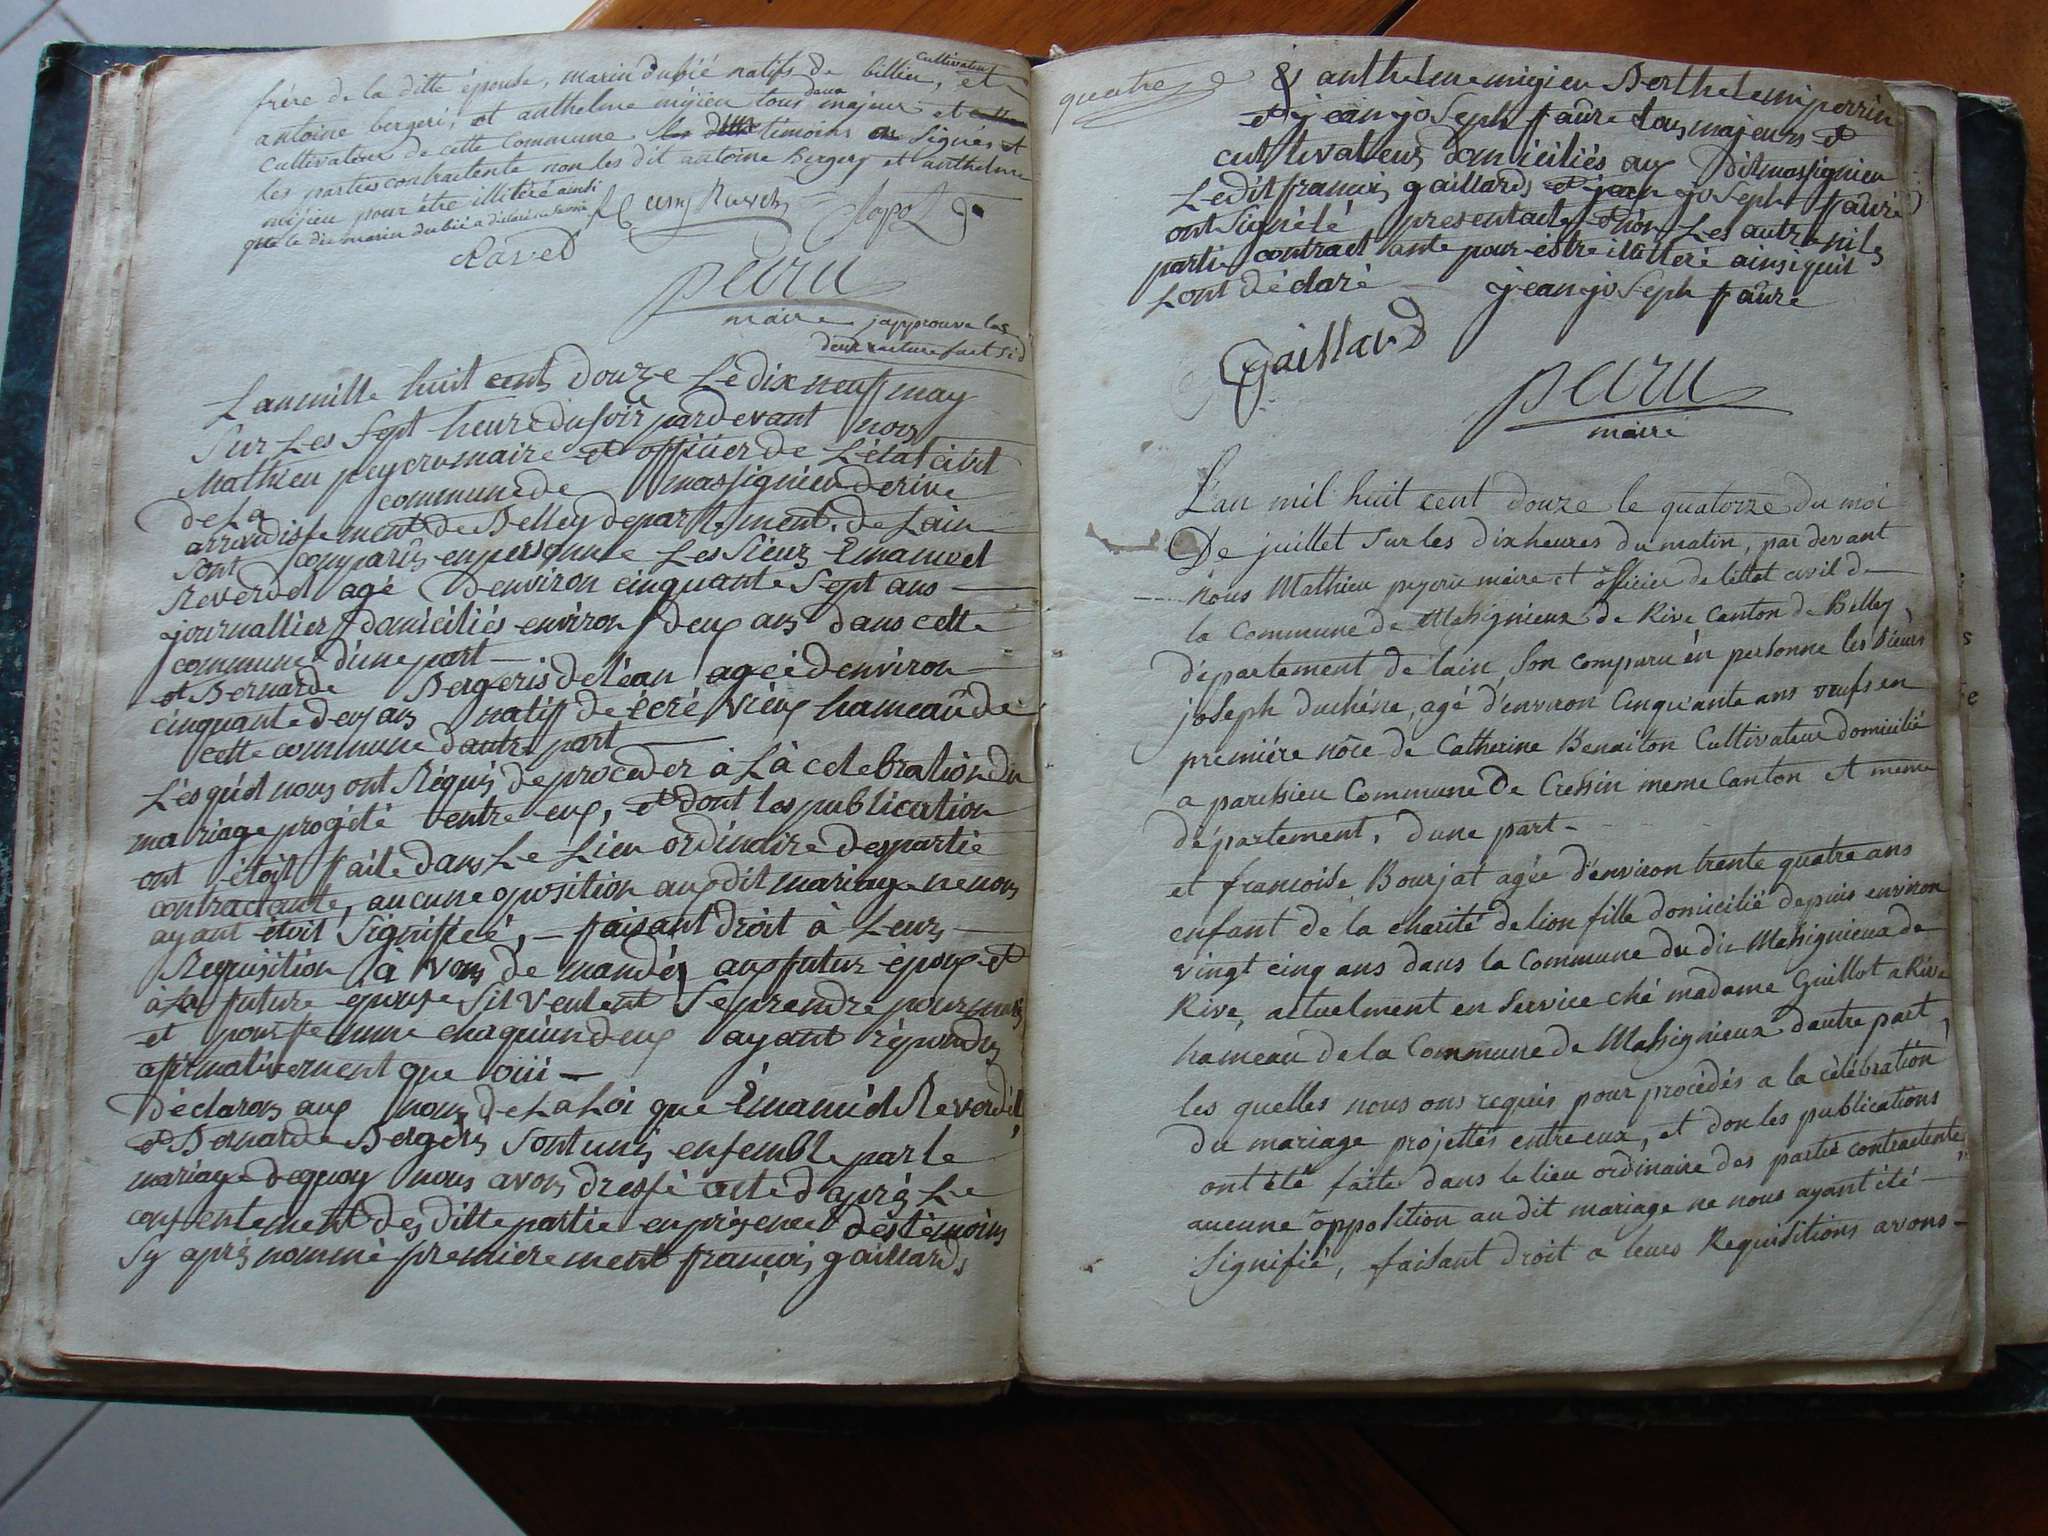 frére de la ditte épouse, marin dubié natifs de billieu, cultivateur et
antoine bergeri, et anthelme mijieu tous deux majeur et
cultivateur de cette Commune témoins signés et
les parties contractente non les dit antoine Bergery et anthelme
mijieu pour être illitéré ainsi
que le dit marin dubié a déclaré
Ravet
peÿru
maire japprouve les
deux
Lan mille huit cents douze Le dix neuf may
sur Les Sept heure du soir pardevant nous
Mathieu peyeru maire et officier de L'état civil
de La commune de massignieu derive
arrondissement de Belley departement de Lain
sont comparûs en personne Les Sieur Emanuel
Reverdel agé denviron cinquante Sept ans
journallier domiciliés environ deux ans dans cette
commune d'une part
et Bernarde Bergeris de léan ageé denviron
cinquante deux ans natif de écrévieux hameau de
cette commune dautre part
Lesquel nous ont Réquis de proceder à La celebration du
mariage progété entre eux, et dont les publication
ont étoit faite dans Le Lieu ordinaire des partie
contractante, aucune oposition aux dit mariage ne nous
ayant étoit Signifieé, faisant droit à Leurs
Requisition à vons demandé aux futur époux et
à La future épouse Sil veulent Se prendre pour mari
et pour femme chaquun deux ayant répondu
afirmativement que oüi
déclarons aux nom de La Loi que Emanuel Reverdel,
et Bernarde Bergeris Sont unis ensemble par le
mariage dequoy nous avons dressé acte daprés Le
consentement des ditte partie en présence des témoins
sy aprés nommé premierement françois gaillards
quatre
& anthelme migieu Berthelemi perrin
et jean joseph faure tous majeurs et
cultivateurs domiciliés au Dit massignieu
Ledit francois gaillards et jean joseph faure
ont Signé Le present acte et non Les autre ni les
partie contractante pour estre illetteré ainsi quil
Lont déclaré jean joseph faure
Gaillard
peÿru
maire
L'an mil huit cent douze le quatorze du moi
De juillet sur les dix heures du matin, par devant
nous Mathieu peyeru maire et officier de lettat civil de
la Commune de Massignieux de Rive Canton de Belley
département de lain, Son comparu en personne les Sieurs
joseph duchéne, agé d'environ Cinquante ans veufs en
premiére nôce de Catherine Benaiton Cultivateur domicilié
a parissieu Commune de Cressin meme Canton et meme
département, d'une part
et francoise Bourjat agée d'environ trente quatre ans
enfant de la charité de lion fille domicilié depuis environ
vingt cinq ans dans la Commune du dit Massignieux de
Rive, actuelment en service ché madame Guillot a Rive
hameau de la Commune de Massignieux d'autre part,
les quelles nous ons requis pour procédés a la célébration
du mariage projettés entre eux, et don les publications
ont été faite dans le lieu ordinaire des partie contractente,
aucune opposition au dit mariage ne nous ayant été
signifié, faisant droit a leurs Requisitions avons